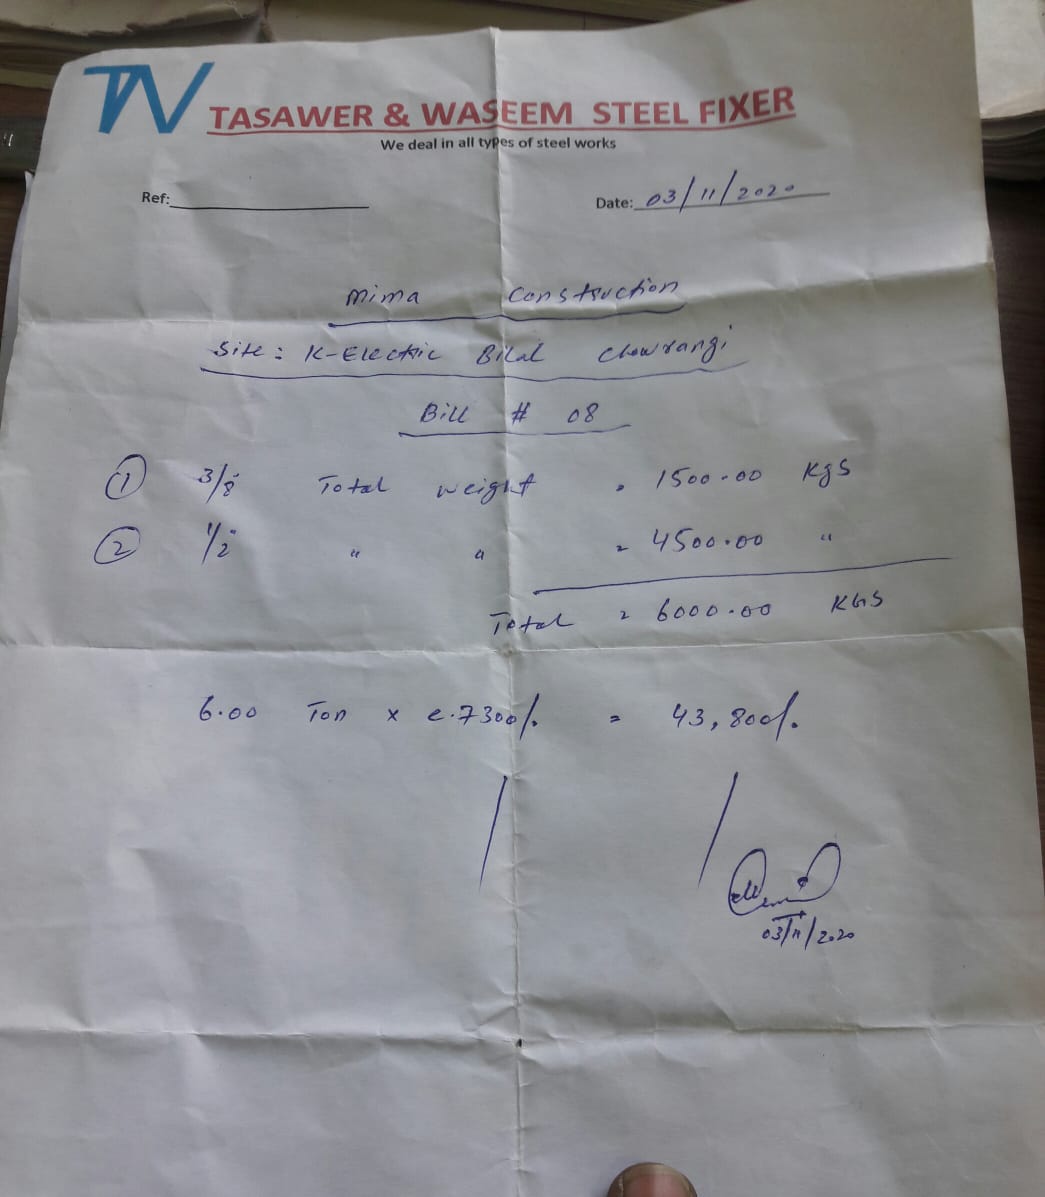 TW
TASAWER & WASEEM STEEL FIXER
We deal in all types of steel works
Ref:
Date: 03/11/2020
Mima Construction
Site: K-Electric Bilal Chowrangi
Bill # 08
① 3/8" Total weight = 1500.00 Kgs
② 1/2" " " = 4500.00 "
Total = 6000.00 KGS
6.00 Ton x @.7300/. = 43,800/.
03/11/2020